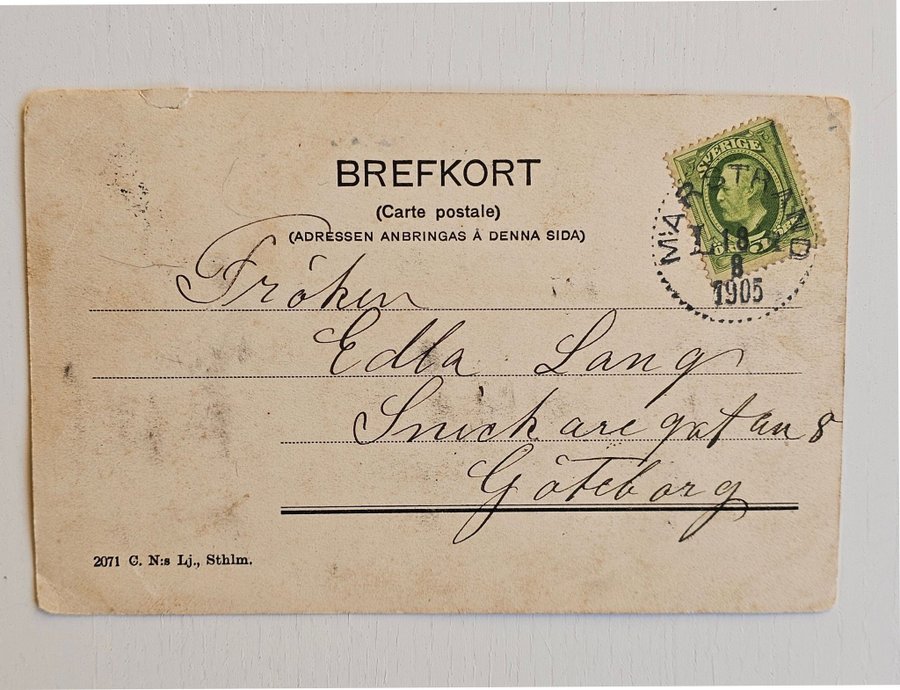 BREFKORT
(Carte postale)
(ADRESSEN ANBRINGAS Å DENNA SIDA)
SVERIGE
MARSTRAND
18
8
1905
Fröken
Edla Lang
Snickaregatan 8
Göteborg
2071 C. N:s Lj., Sthlm.